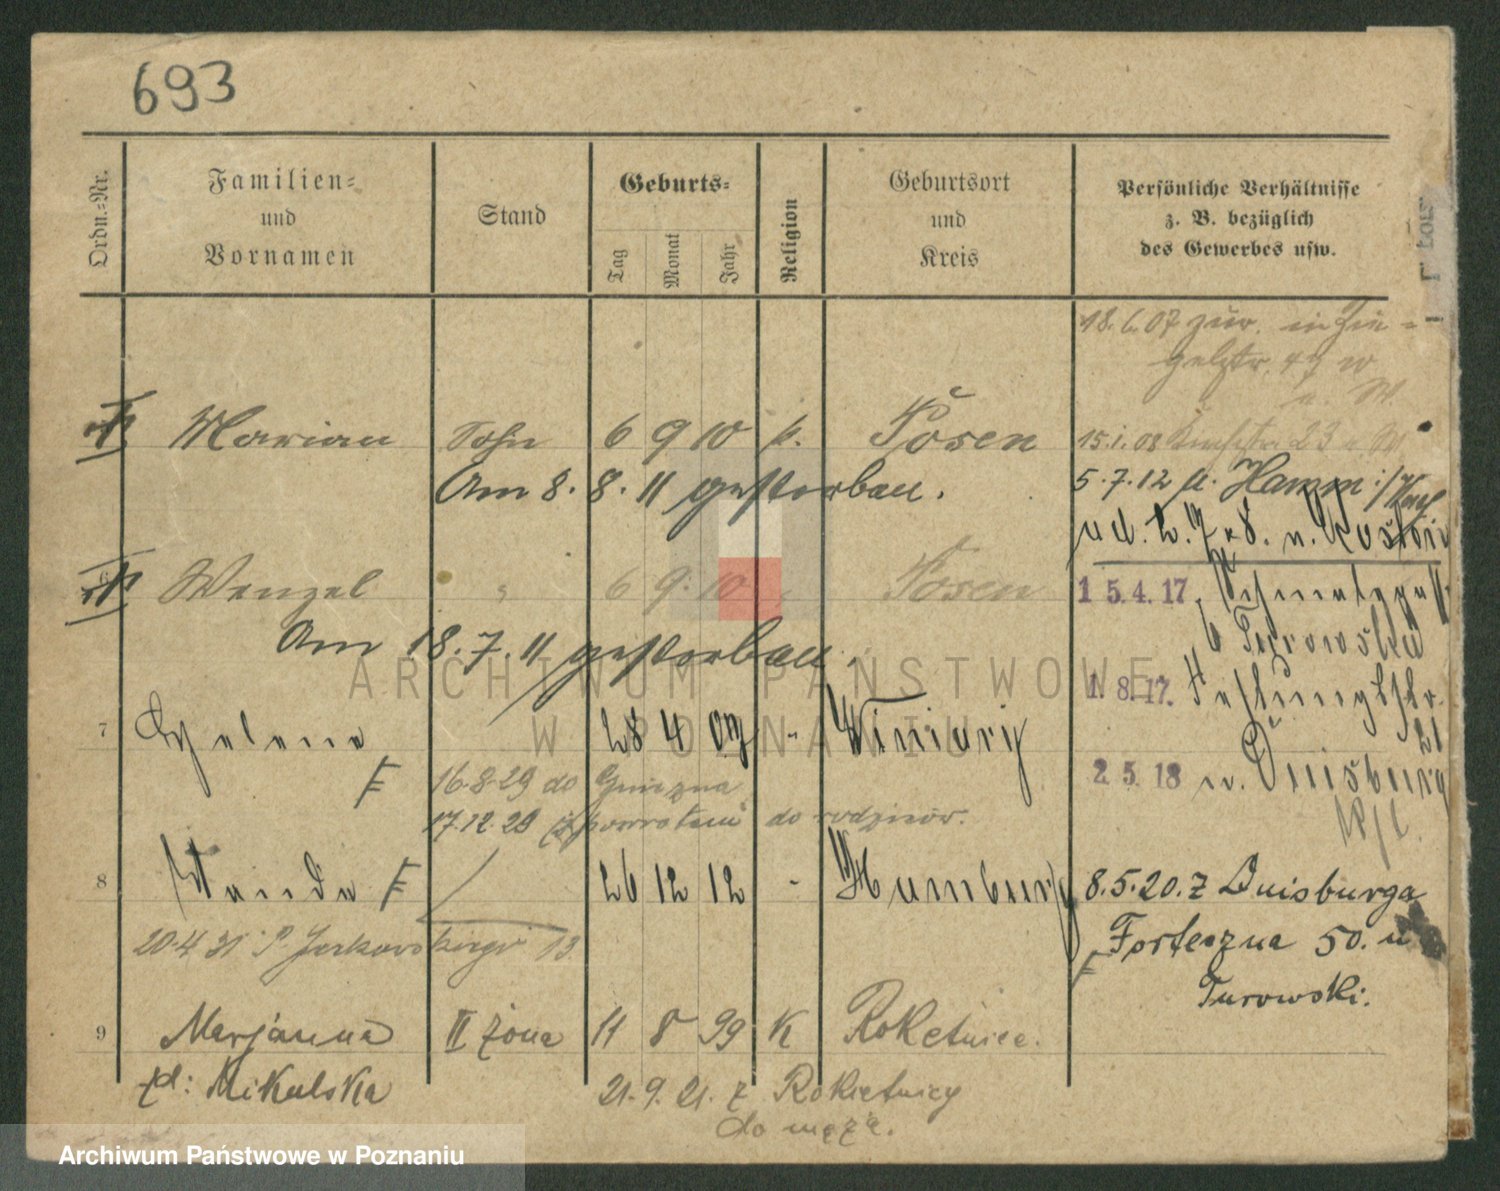 693
Ordn.-Nr.
Familien-
und
Vornamen
Stand
Geburts-
Tag
Monat
Jahr
Religion
Geburtsort
und
Kreis
Persönliche Verhältnisse
z. B. bezüglich
des Gewerbes usw.
18.6.07 zur. in Zie-
gelstr.
Marian Sohn 6 9 10 k. Posen
15.1.08 23
Am 8. 8. 11 gestorben.
5.7.12 n. Hamm
Wenzel " 6 9. 10 Posen
15.4.17.
Am 18.7.11 gestorben.
Turowski
1. 8. 17. Festungsstr.
21
7 Helene 28 4 07 " Winiary
2 5. 18 n. Duisburg
16.8.29 do Gniezna
17.12.29 z powrotem do rodziców.
8 Wanda 26 12 12 " Hamburg
8.5.20. z Duisburga
Forteczna 50. u
Turowski.
20.4 31 13
9 Marjanna II żona 11 8 99 K Rokietnica.
zd: Mikulska 21. 9. 21. z Rokietnicy
do męża.
ARCHIWUM PAŃSTWOWE
W POZNANIU
Archiwum Państwowe w Poznaniu